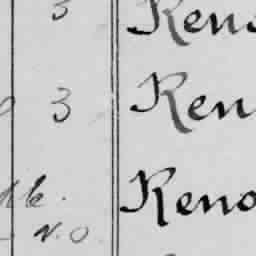 3 Reno
3 Ren
Reno
N.O